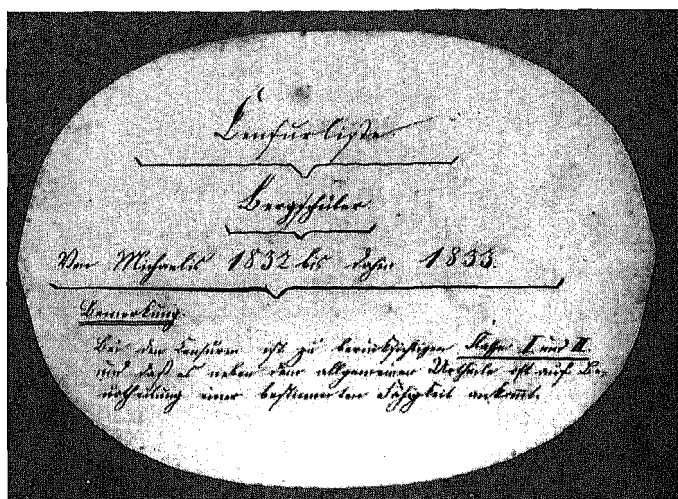 Censurliste
Bergschüler
Von Michaelis 1832 bis dahin 1833.
Bemerkung.
Bei den Censuren ist zu berücksichtigen Klasse I und II.
und daß es neben dem allgemeinen Urtheile oft auf Be-
urtheilung einer bestimmten Fähigkeit ankommt.